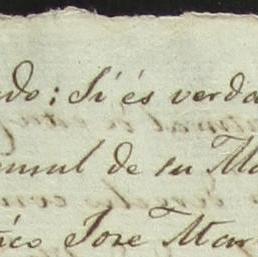 ado; Si és verda
onsul de su Ma
ñico Jose Mar